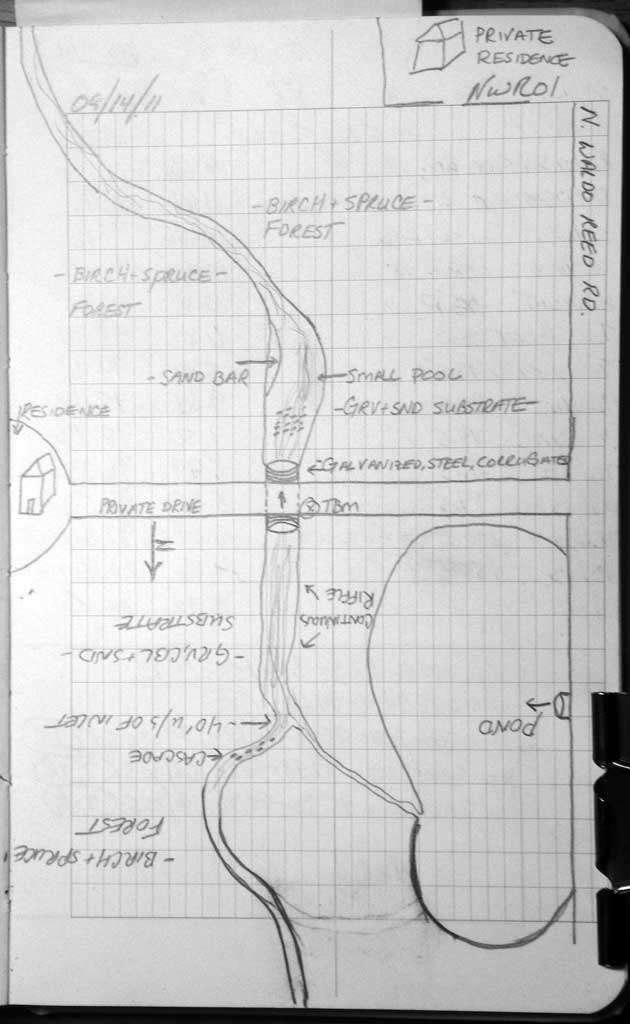 PRIVATE
RESIDENCE
NWR01
09/14/11
N. WALDO REED RD.
- BIRCH + SPRUCE -
FOREST
- BIRCH + SPRUCE -
FOREST
- SAND BAR
SMALL POOL
- GRV + SND SUBSTRATE -
RESIDENCE
GALVANIZED, STEEL, CORRUGATED
PRIVATE DRIVE
TBM
N
CONTINUOUS
RIFFLE
- GRV, CBL + SND -
SUBSTRATE
POND
- 40' U/S OF INLET
CASCADE
- BIRCH + SPRUCE
FOREST